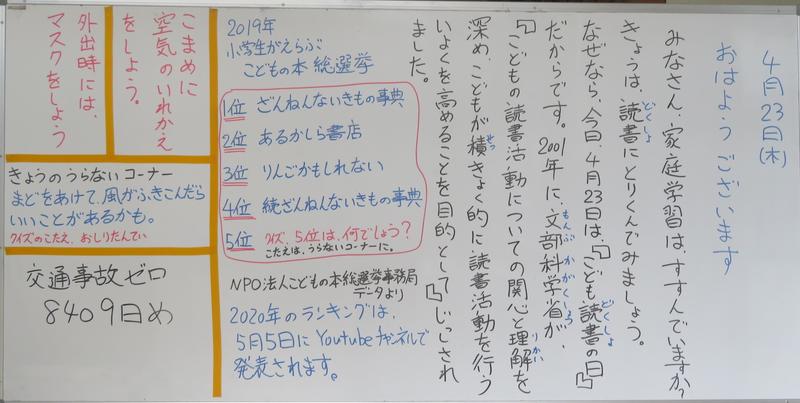 4月23日(木)
おはようございます
みなさん、家庭学習は、すすんでいますか?
きょうは、読書にとりくんでみましょう。
どくしょ
なぜなら、今日、4月23日は、「こども読書の日」
どくしょ
だからです。2001年に、文部科学省が、
もんぶかがくしょう
「こどもの読書活動についての関心と理解を
りかい
深め、こどもが積きょく的に読書活動を行う
せっ
いよくを高めることを目的として」じっしされ
ました。
2019年
小学生がえらぶ
こどもの本総選挙
1位 ざんねんないきもの事典
2位 あるかしら書店
3位 りんごかもしれない
4位 続ざんねんないきもの事典
5位 クイズ、5位は、何でしょう?
こたえは、うらないコーナーに。
NPO法人こどもの本総選挙事務局
データより
2020年のランキングは、
5月5日にYoutubeチャンネルで
発表されます。
こまめに
空気のいれかえ
をしよう。
外出時には、
マスクをしよう
きょうのうらないコーナー
まどをあけて、風がふきこんだら
いいことがあるかも。
クイズのこたえ、おしりたんてい
交通事故ゼロ
8409日め